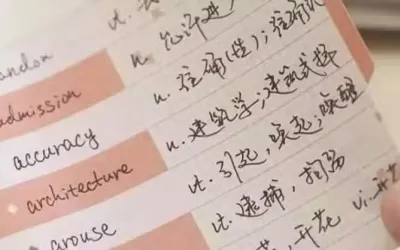 andon vt.
admission n. 允许进
accuracy n. 准确(性); 准确
architecture n. 建筑学; 建筑式样
arouse vt. 引起, 唤起; 唤醒
vt. 逮捕, 拘留
开花 vi. 开